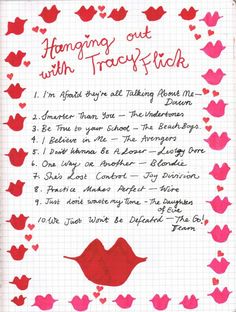 Hanging out
with Tracy Flick
1. I'm Afraid they're all Talking About Me—
Dawn
2. Smarter Than You — The Undertones
3. Be True to your School — The Beach Boys.
4. I Believe in Me — The Avengers
5. I Don't Wanna Be A Loser — Lesley Gore
6. One Way or Another — Blondie
7. She's Lost Control — Joy Division
8. Practice Makes Perfect — Wire
9. Just don't waste my Time — The Daughters
of Eve
10. We Just Won't Be Defeated — The Go!
Team